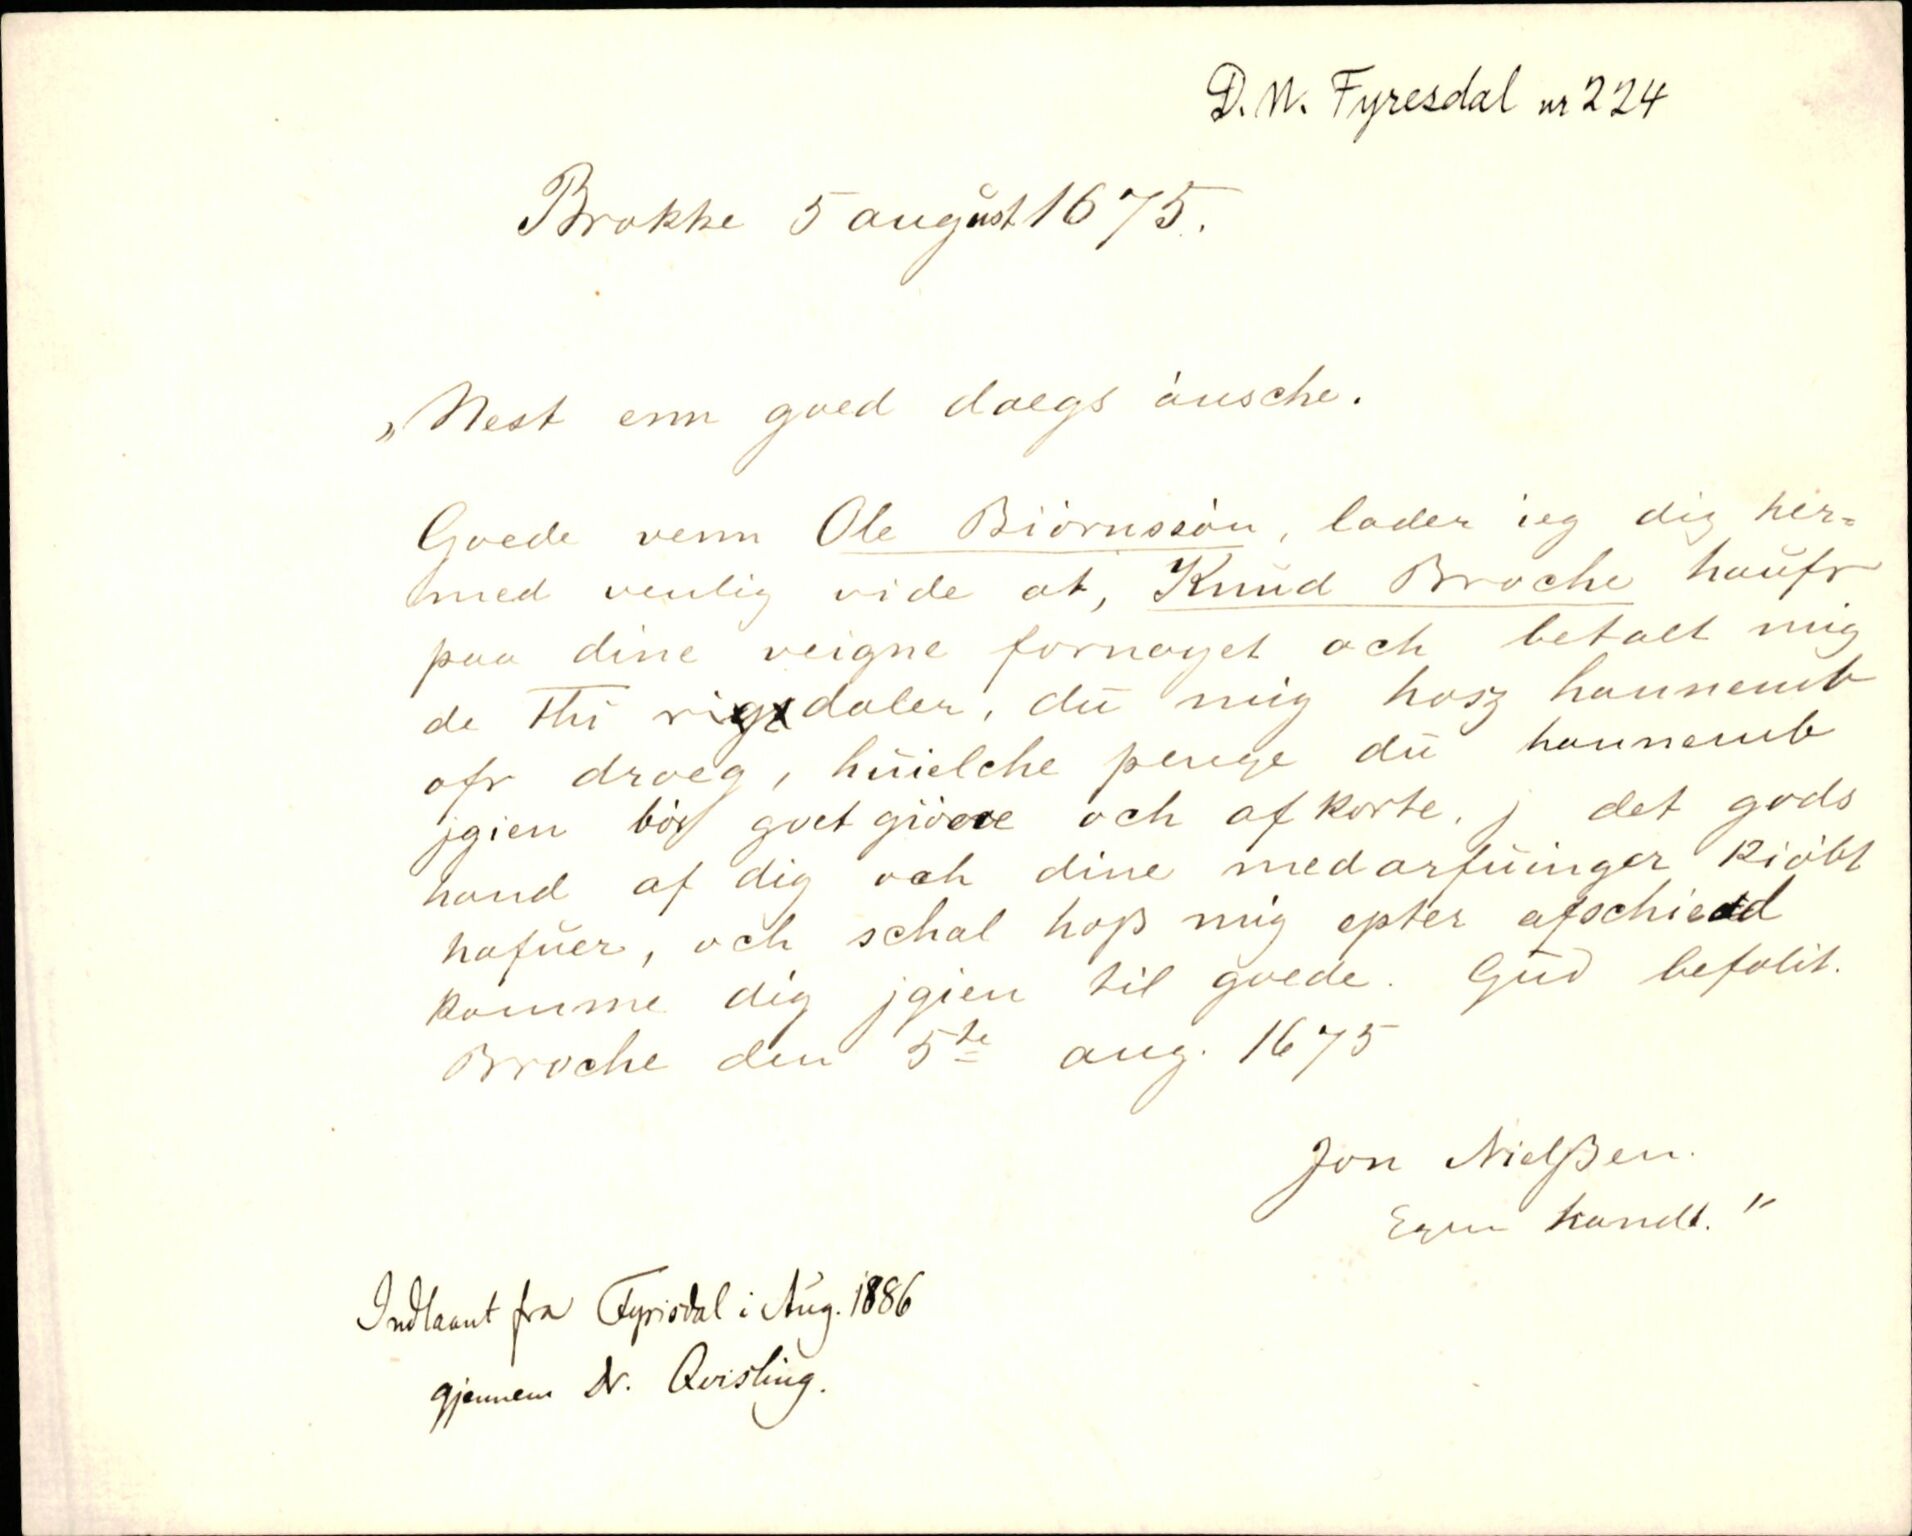 D. N. Fyresdal nr 224
Brokke 5 august 1675.
„Nest enn goed daegs ònsche.
Goede venn Ole Biórnssón, lader ieg dig her=
med venlig vide at, Knud Broche haufr
paa dine veigne fornøyet och betalt mig
de Thi daler, du mig hosz hannemb
ofr droeg, huielche penge du hannemb
jgien bór goet gióere och afkorte, j det gods
hand af dig och dine medarfuinger kióbt
hafuer, och schal hoß mig epter afschied
komme dig jgien til goede. Gud befalit.
Broche den 5te aug. 1675
Jon Nielßen.
Egen handt."
Indlaant fra Fyrisdal i Aug. 1886
gjennem Dr. Qvisling.